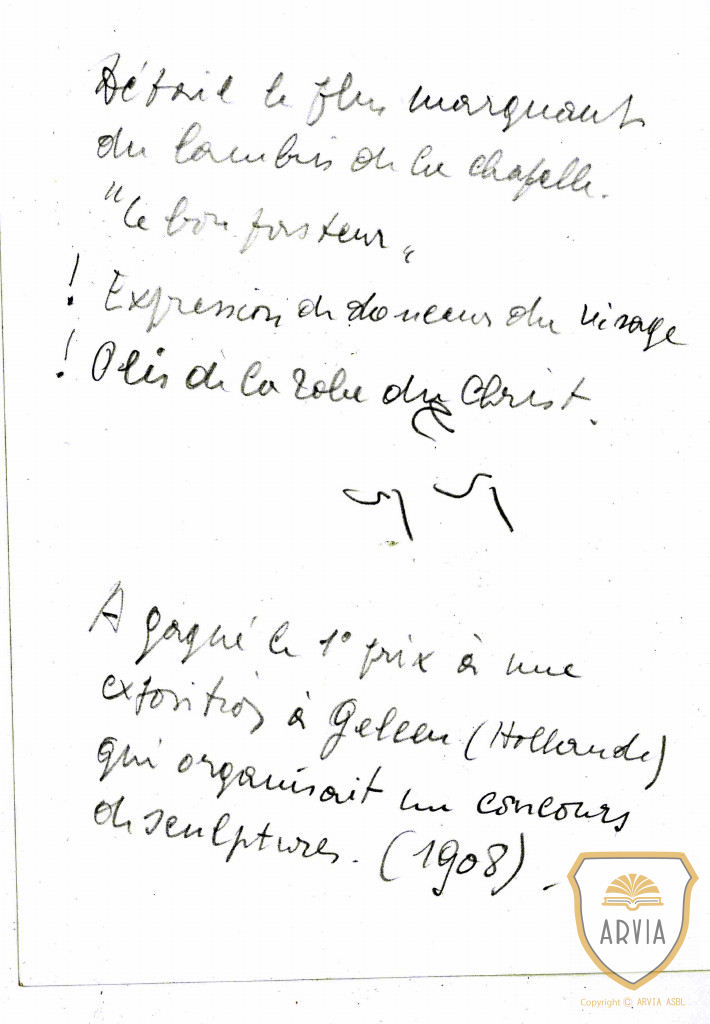 Détail le plus marquant
du lambris de la chapelle.
"le bon pasteur"
! Expression de douceur du visage
! Plis de la robe du Christ.
A gagné le 1° prix à une
exposition à Geleen (Hollande)
qui organisait un concours
de sculptures. (1908).
ARVIA
Copyright © ARVIA ASBL